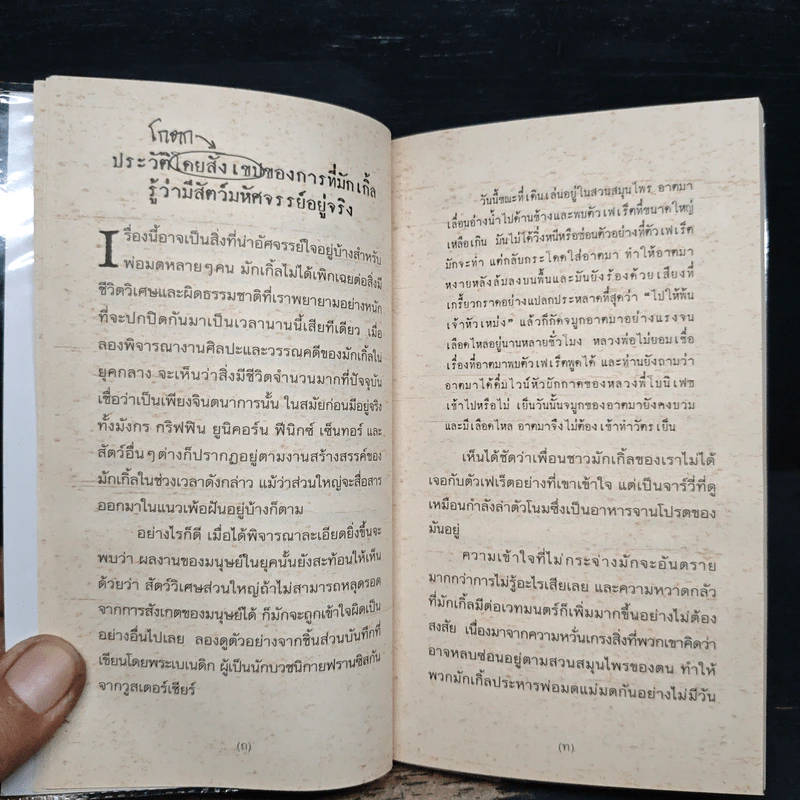 โกหก
ประวัติโดยสังเขปของการที่มักเกิ้ล
รู้ว่ามีสัตว์มหัศจรรย์อยู่จริง
เรื่องนี้อาจเป็นสิ่งที่น่าอัศจรรย์ใจอยู่บ้างสำหรับ
พ่อมดหลายๆคน มักเกิ้ลไม่ได้เพิกเฉยต่อสิ่งมี
ชีวิตวิเศษและผิดธรรมชาติที่เราพยายามอย่างหนัก
ที่จะปกปิดกันมาเป็นเวลานานนี้เสียทีเดียว เมื่อ
ลองพิจารณางานศิลปะและวรรณคดีของมักเกิ้ลใน
ยุคกลาง จะเห็นว่าสิ่งมีชีวิตจำนวนมากที่ปัจจุบัน
เชื่อว่าเป็นเพียงจินตนาการนั้น ในสมัยก่อนมีอยู่จริง
ทั้งมังกร กริฟฟิน ยูนิคอร์น ฟีนิกซ์ เซ็นทอร์ และ
สัตว์อื่นๆต่างก็ปรากฏอยู่ตามงานสร้างสรรค์ของ
มักเกิ้ลในช่วงเวลาดังกล่าว แม้ว่าส่วนใหญ่จะสื่อสาร
ออกมาในแนวเพ้อฝันอยู่บ้างก็ตาม
อย่างไรก็ดี เมื่อได้พิจารณาละเอียดยิ่งขึ้นจะ
พบว่า ผลงานของมนุษย์ในยุคนั้นยังสะท้อนให้เห็น
ด้วยว่า สัตว์วิเศษส่วนใหญ่ถ้าไม่สามารถหลุดรอด
จากการสังเกตของมนุษย์ได้ ก็มักจะถูกเข้าใจผิดเป็น
อย่างอื่นไปเลย ลองดูตัวอย่างจากชิ้นส่วนบันทึกที่
เขียนโดยพระเบเนดิก ผู้เป็นนักบวชนิกายฟรานซิสกัน
จากวูสเตอร์เชียร์
(ถ)
วันนี้ขณะที่เดินเล่นอยู่ในสวนสมุนไพร อาตมา
เลื่อนอ่างน้ำไปด้านข้างและพบตัวเฟเร็ตที่ขนาดใหญ่
เหลือเกิน มันไม่ได้วิ่งหนีหรือซ่อนตัวอย่างที่ตัวเฟเร็ต
มักจะทำ แต่กลับกระโดดใส่อาตมา ทำให้อาตมา
หงายหลังล้มลงบนพื้นและมันยังร้องด้วยเสียงที่
เกรี้ยวกราดอย่างแปลกประหลาดที่สุดว่า "ไปให้พ้น
เจ้าหัวเหม่ง" แล้วก็กัดจมูกอาตมาอย่างแรงจน
เลือดไหลอยู่นานหลายชั่วโมง หลวงพ่อไม่ยอมเชื่อ
เรื่องที่อาตมาพบตัวเฟเร็ตพูดได้ และท่านยังถามว่า
อาตมาได้ดื่มไวน์หัวผักกาดของหลวงพี่โบนิเฟซ
เข้าไปหรือไม่ เย็นวันนั้นจมูกของอาตมายังคงบวม
และมีเลือดไหล อาตมาจึงไม่ต้องเข้าทำวัตรเย็น
เห็นได้ชัดว่าเพื่อนชาวมักเกิ้ลของเราไม่ได้
เจอกับตัวเฟเร็ตอย่างที่เขาเข้าใจ แต่เป็นจาร์วีที่ดู
เหมือนกำลังล่าตัวโนมซึ่งเป็นอาหารจานโปรดของ
มันอยู่
ความเข้าใจที่ไม่กระจ่างมักจะอันตราย
มากกว่าการไม่รู้อะไรเสียเลย และความหวาดกลัว
ที่มักเกิ้ลมีต่อเวทมนตร์ก็เพิ่มมากขึ้นอย่างไม่ต้อง
สงสัย เนื่องมาจากความหวั่นเกรงสิ่งที่พวกเขาคิดว่า
อาจหลบซ่อนอยู่ตามสวนสมุนไพรของตน ทำให้
พวกมักเกิ้ลประหารพ่อมดแม่มดกันอย่างไม่มีวัน
(ท)